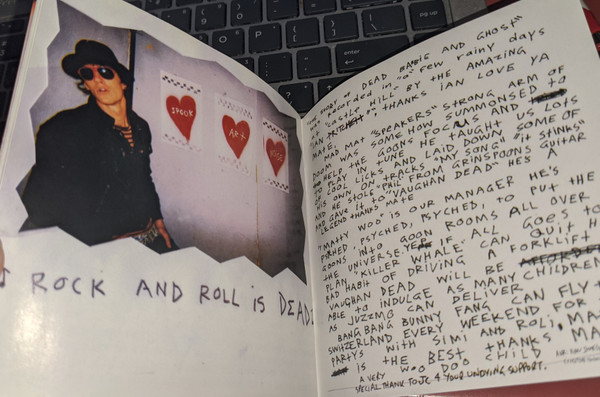 SPOOK
ART
ROCK AND ROLL IS DEAD
STORY OF DEAD BABIE AND GHOST"
RECORDED IN "A" FEW RAINY DAYS
AT "CASTLE HILL" BY THE AMAZING
IAN THANKS IAN LOVE YA
MATE.
MAD MAT "SPEAKERS" STRONG ARM OF
DOOM WAS SOME HOW SUMMONSED TO
HELP THE GOONS FOCUS AND US LOTS
TO PLAY IN TUNE HE TAUGHT
OF COOL LICKS AND LAID DOWN SOME OF
HIS OWN ON TRACKS "MY SONG" "IT STINKS"
AND HE STOLE "PHIL FROM GRINSPOONS GUITAR
AND GAVE IT TO "VAUGHAN DEAD" HE'S A
LEGEND THANKS MATE
"MATTY WOO" IS OUR MANAGER HE'S
PSYCHED, PSYCHED, TO PUT THE
GOONS INTO GOON ROOMS ALL OVER
THE UNIVERSE. IF ALL GOES TO
PLAN "KILLER WHALE" CAN QUIT HIS
BAD HABIT OF DRIVING A FORKLIFT
VAUGHAN DEAD WILL BE
ABLE TO INDULGE AS MANY CHILDREN
AS JUZZMO CAN DELIVER
BANG BANG BUNNY FANG CAN FLY
SWITZERLAND EVERY WEEKEND FOR
PARTYS WITH SIMI AND ROLI, MA
IS THE BEST THANKS MA
A VERY WOO DOO CHILD
SPECIAL THANK TO JC 4 YOUR UNDYING SUPPORT.
pg up
enter